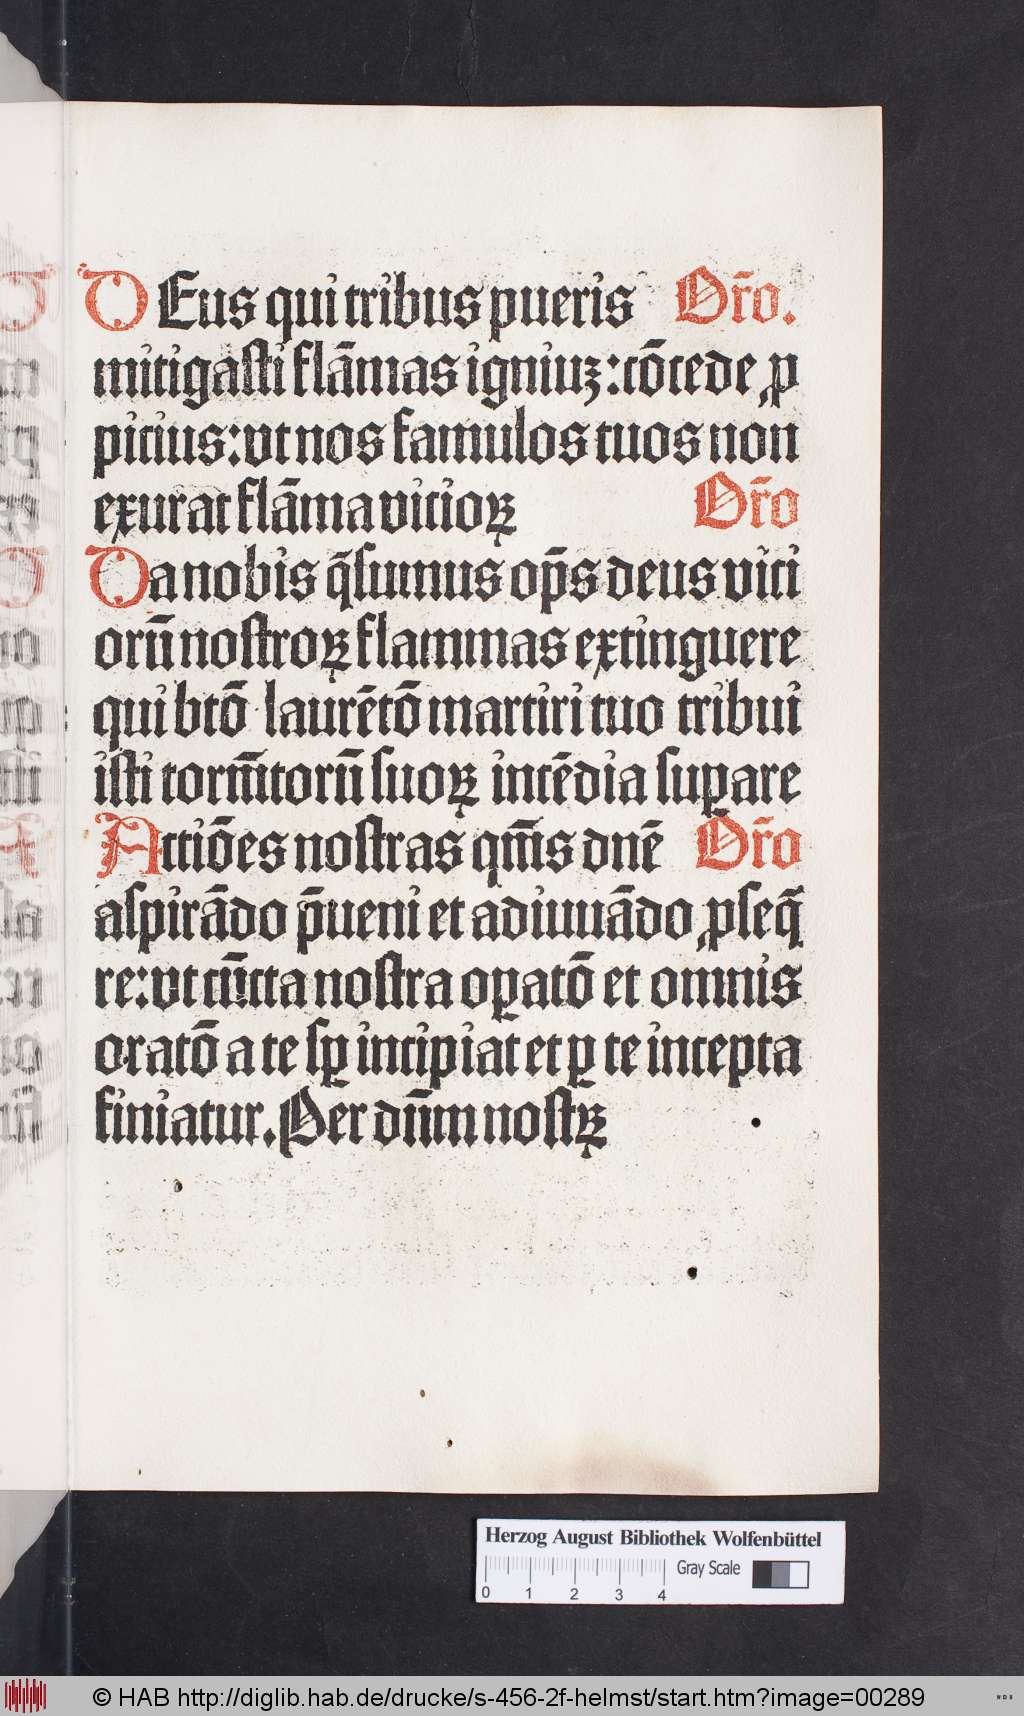 DEus qui tribus pueris Or̄o.
mitigasti flāmas igniuꝫ: cōcede ꝓ
picius: vt nos famulos tuos non
exurat flāma vicioꝝ Or̄o
Da nobis q̄sumus op̄s deus vici
orū nostroꝝ flammas extinguere
qui btō laurētō martiri tuo tribui
isti torm̄torū suoꝝ incēdia suꝑare
Actiōes nostras qm̄s dnē Or̄o
aspirādo p̄ueni et adiuuādo ꝓseq̄
re: vt cūcta nostra oꝑatō et omnis
oratō a te sꝑ incipiat et ꝑ te incepta
finiatur. Per dn̄m nostꝝ
Herzog August Bibliothek Wolfenbüttel
Gray Scale
0 1 2 3 4
© HAB http://diglib.hab.de/drucke/s-456-2f-helmst/start.htm?image=00289